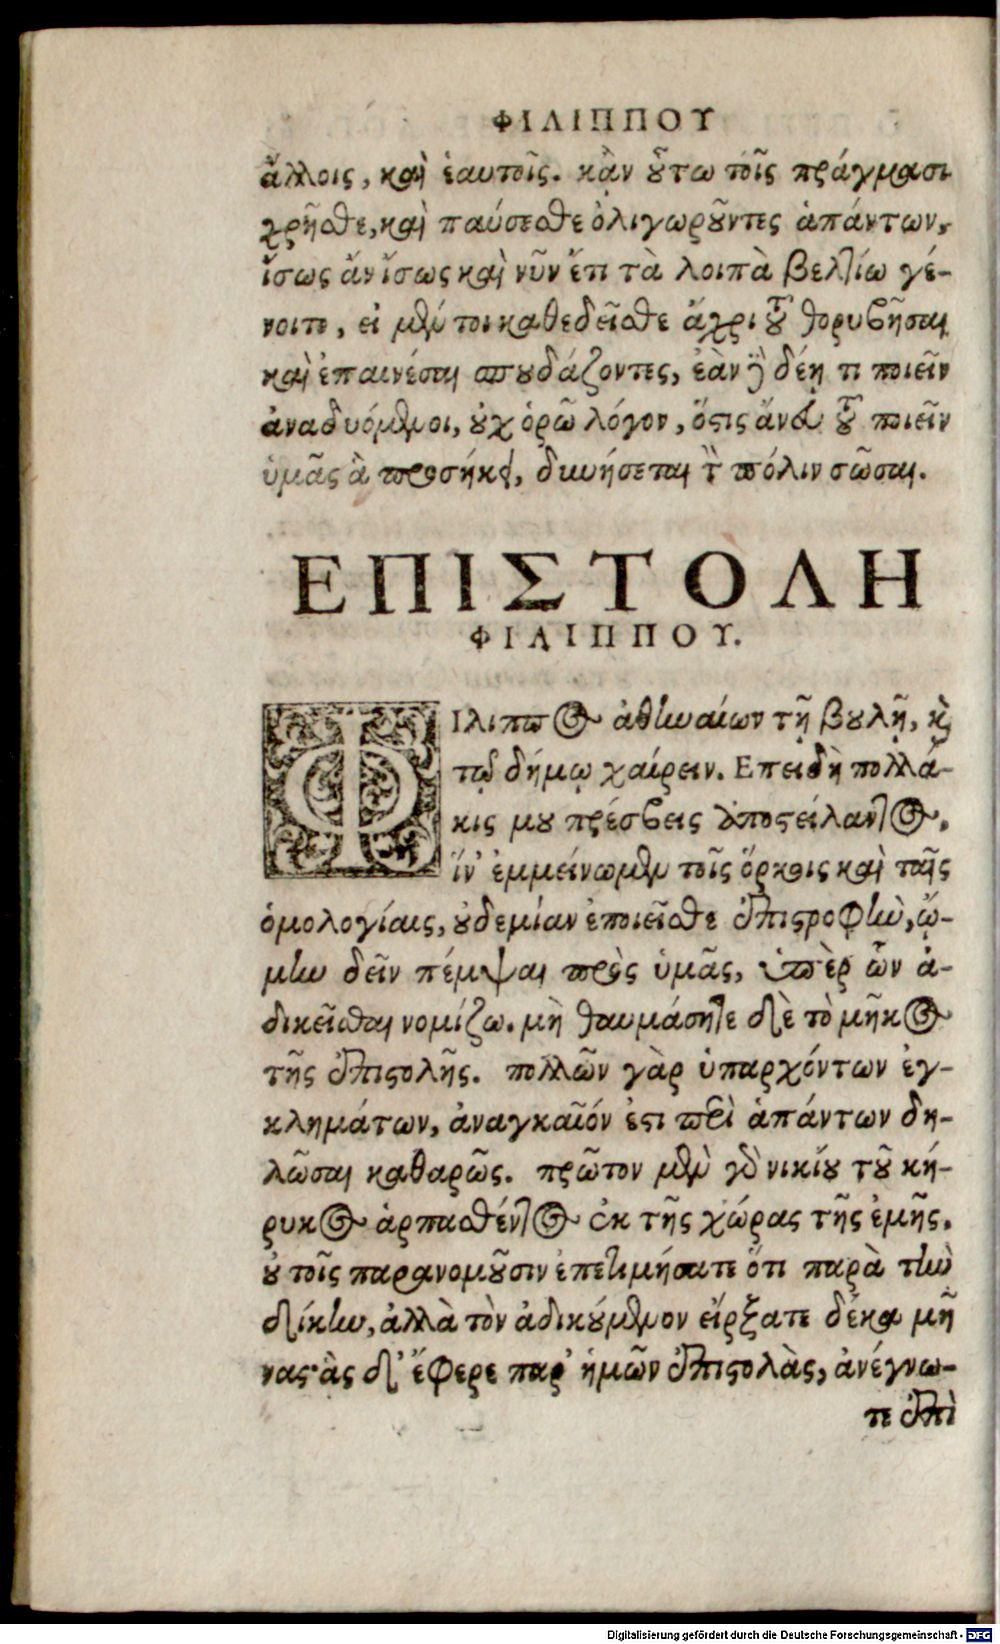 ΦΙΛΙΠΠΟΥ
ἄλλοις, καὶ ἑαυτοῖς. κἂν οὕτω τοῖς πράγμασι
χρῆσθε, καὶ παύσεσθε ὀλιγωροῦντες ἁπάντων,
ἴσως ἂν ἴσως καὶ νῦν ἔτι τὰ λοιπὰ βελτίω γέ-
νοιτο, εἰ μέν τοι καθεδεῖσθε ἄχρι τοῦ θορυβῆσαι
καὶ ἐπαινέσαι σπουδάζοντες, ἐὰν δὲ δέῃ τι ποιεῖν
ἀναδυόμενοι, οὐχ ὁρῶ λόγον, ὅστις ἄνευ τοῦ ποιεῖν
ὑμᾶς ἃ προσήκει, δυνήσεται τὴν πόλιν σῶσαι.
ΕΠΙΣΤΟΛΗ
ΦΙΛΙΠΠΟΥ.
ΦΙλιππος ἀθηναίων τῇ βουλῇ, καὶ
τῷ δήμῳ χαίρειν. Επειδὴ πολλά-
κις μου πρέσβεις ἀποστείλαντος,
ἵν' ἐμμείνωμεν τοῖς ὅρκοις καὶ ταῖς
ὁμολογίαις, οὐδεμίαν ἐποιεῖσθε ἐπιστροφὴν, ᾤ-
μην δεῖν πέμψαι πρὸς ὑμᾶς, ὑπὲρ ὧν ἀ-
δικεῖσθαι νομίζω. μὴ θαυμάσητε διὰ τὸ μῆκος
τῆς ἐπιστολῆς. πολλῶν γὰρ ὑπαρχόντων ἐγ-
κλημάτων, ἀναγκαῖόν ἐστι περὶ ἁπάντων δη-
λῶσαι καθαρῶς. πρῶτον μὲν γὰρ νικίου τοῦ κή-
ρυκος ἁρπασθέντος ἐκ τῆς χώρας τῆς ἐμῆς,
οὐ τοῖς παρανομοῦσιν ἐπετιμήσατε ὅτι παρὰ τὴν
δίκην, ἀλλὰ τὸν ἀδικούμενον εἵρξατε δέκα μῆ
νας· ἃς δ' ἔφερε παρ' ἡμῶν ἐπιστολὰς, ἀνέγνω-
τε ἐπὶ
Digitalisierung gefördert durch die Deutsche Forschungsgemeinschaft - DFG